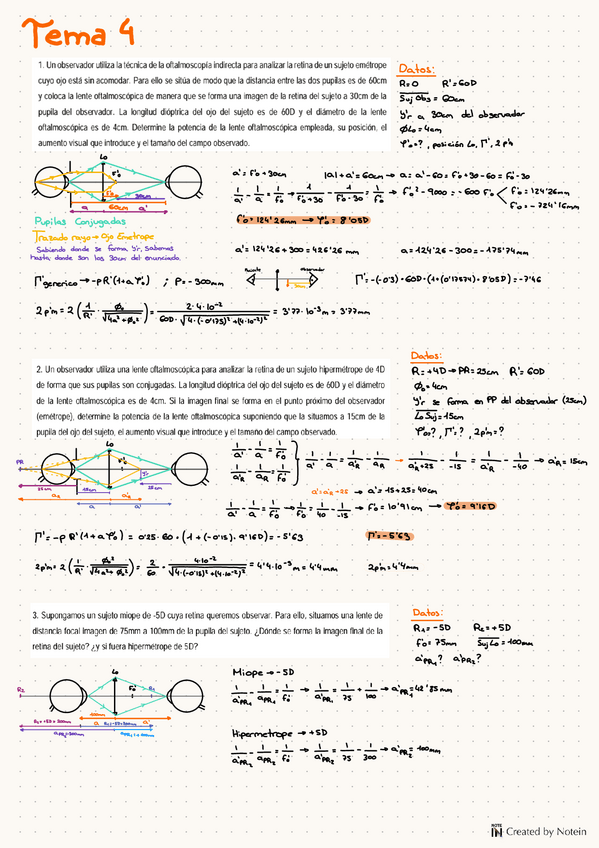 Tema 4
1. Un observador utiliza la técnica de la oftalmoscopía indirecta para analizar la retina de un sujeto emétrope
cuyo ojo está sin acomodar. Para ello se sitúa de modo que la distancia entre las dos pupilas es de 60cm
y coloca la lente oftalmoscópica de manera que se forma una imagen de la retina del sujeto a 30cm de la
pupila del observador. La longitud dióptrica del ojo del sujeto es de 60D y el diámetro de la lente
oftalmoscópica es de 4cm. Determine la potencia de la lente oftalmoscópica empleada, su posición, el
aumento visual que introduce y el tamaño del campo observado.
Datos:
R=0 R'=60D
Suj Obs = 60cm
y'r a 30cm del observador
ØLo=4cm
φ'o=?, posición Lo, Γ', 2p'n
Lo
F'o
30cm
a 60cm a'
Pupilas Conjugadas
Trazado rayo → Ojo Emetrope
Sabiendo donde se forma y'r, sabemos
hasta donde son los 30cm del enunciado.
a'= f'o+30cm |a|+a'=60cm → a= a'-60= f'o+30-60= f'o-30
1/a' - 1/a = 1/f'o → 1/f'o+30 - 1/f'o-30 = 1/f'o → f'o²-9000 = -600 f'o < f'o=124'26mm
f'o=-724'16mm
f'o=124'26mm → φ'o= 8'05D
a'= 124'26+300=426'26 mm a=124'26-300=-175'74mm
Γ'generico → -pR'(1+aφ'o) ; p=-300mm
Paciente observador
Γ'=-(-0'3)·60D·(1+(0'17574)·8'05D)=-7'46
2p'm=2(1/R' · Øo/√4a²+Øo²) = 2·4·10⁻²/60D·√4·(-0'175)²+(4·10⁻²)² = 3'77·10⁻³m = 3'77mm
2. Un observador utiliza una lente oftalmoscópica para analizar la retina de un sujeto hipermétrope de 4D
de forma que sus pupilas son conjugadas. La longitud dióptrica del ojo del sujeto es de 60D y el diámetro
de la lente oftalmoscópica es de 4cm. Si la imagen final se forma en el punto próximo del observador
(emétrope), determine la potencia de la lente oftalmoscópica suponiendo que la situamos a 15cm de la
pupila del ojo del sujeto, el aumento visual que introduce y el tamaño del campo observado.
Datos:
R=+4D → PR=25cm R'=60D
Øo=4cm
y'r se forma en PP del observador (25cm)
Lo Suj=15cm
φ'o=?, Γ'=?, 2p'n=?
PR
Lo
F'o
y'r
25cm 15cm 25cm
aR a'R
a a'
1/a' - 1/a = 1/f'o
1/a'R - 1/aR = 1/f'o
1/a' - 1/a = 1/a'R - 1/aR → 1/a'R+25 - 1/-15 = 1/a'R - 1/-40 → a'R=15cm
a'=a'R-25 → a'=15+25=40cm
1/a' - 1/a = 1/f'o → 1/f'o = 1/40 - 1/-15 → f'o=10'91cm → φ'o= 9'16D
Γ'=-pR'(1+aφ'o) = 0'25·60·(1+(-0'15)·9'16D)=-5'63 Γ'=-5'63
2p'm=2(1/R' · Øo²/√4a²+Øo²) = 2/60 · 4·10⁻²/√4·(-0'15)²+(4·10⁻²)² = 4'4·10⁻³m = 4'4mm 2p'm=4'4mm
3. Supongamos un sujeto miope de -5D cuya retina queremos observar. Para ello, situamos una lente de
distancia focal imagen de 75mm a 100mm de la pupila del sujeto. ¿Dónde se forma la imagen final de la
retina del sujeto? ¿y si fuera hipermétrope de 5D?
Datos:
R1=-5D R2=+5D
f'o=75mm SujLo=100mm
a'PR1? a'PR2?
R2
Lo
F'o R1
100mm
a a'
Miope → -5D
1/a'PR1 - 1/aPR1 = 1/f'o → 1/a'PR1 = 1/75 + 1/100 → a'PR1=42'85mm
Hipermetrope → +5D
1/a'PR2 - 1/aPR2 = 1/f'o → 1/a'PR2 = 1/75 - 1/300 → a'PR2=100mm
NOTE IN Created by Notein